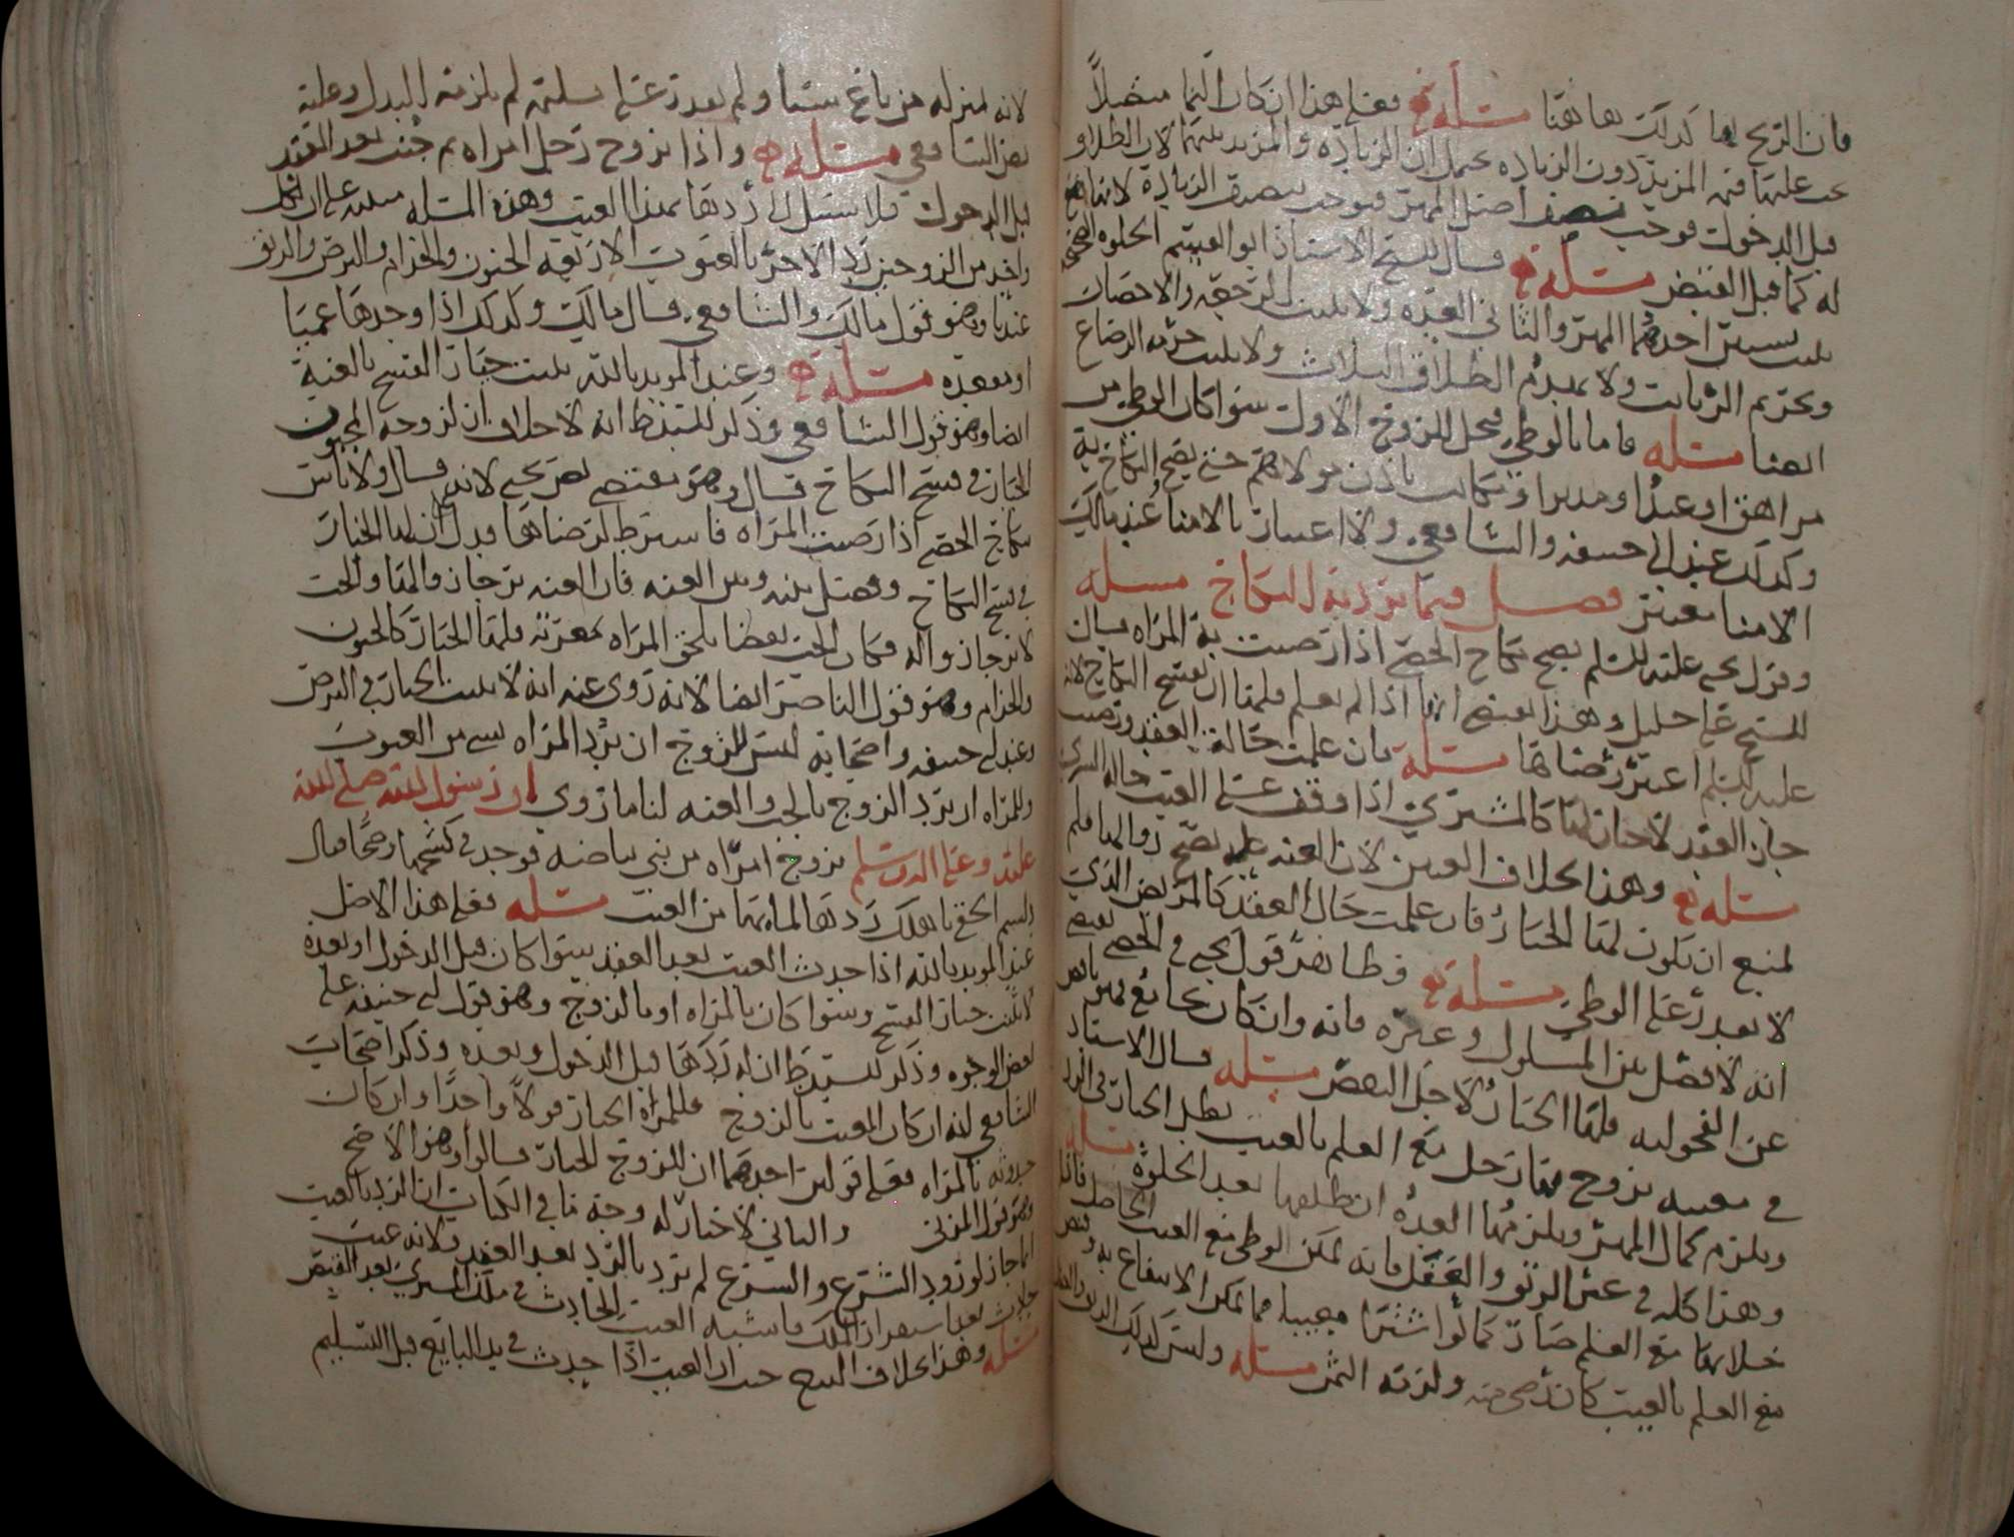 فان الربح لها كذلك هاهنا مسئلة فعلى هذا ان كان النما متصلاً
عليها قيمة المزيد دون الزيادة يحمل ان الزيادة والمزيد بينهما لان الطلاق
قبل الدخول فوجب نصف اصل المهر فوجب نصف الزيادة لانها
له كما قبل القبض مسئلة قال الشيخ الاستاذ ابو القسم الخلوة
احدهما المهر والثاني العدة ولا يثبت الرجعة والاحصان
وتحريم الربائب ولا يهدم الطلاق الثلاث ولا يثبت حرمة الرضاع
ايضا مسئلة فاما بالوطي فيحل للزوج الاول سوا كان الوطي من
مراهق او عبد او مدبر او مكاتب باذن مولاهم حتى يصح النكاح به
وكذلك عند ابي حنيفة والشافعي ولا اعتبار بالامنا عند مالك
الامنا معتبر فصل فيما يرد به النكاح مسئلة
وقول يحيى عليه السلم يصح نكاح الخصي اذا رضيت به المراة
المسيح على خليل وهذا يقتضي انها اذا لم تعلم فلها ان تفسخ النكاح لانه
عليه السلم اعتبر رضاها مسئلة فان علمت حالة العقد ورضيت
جاز العقد لا خيار لها كالمشتري اذا وقف على العيب حالة الشرى
مسئلة وهذا بخلاف العنين لان العنة علة يصح زوالها فلم
لمنع ان يكون لها الخيار فان علمت حال العقد كالمريض الذي
لا يقدر على الوطي مسئلة وظاهر قول يحيى في الخصي يقتضي
انه لا فصل بين المسلول وغيره فانه وان كان يجامع فهو ناقص
عن الفحولية فلها الخيار لاجل النقص مسئلة قال الاستاد
في معيبة تزوج بها رجل مع العلم بالعيب بطل الخيار في الرد مسئلة
ويلزم كمال المهر ويلزمها العدة ان طلقها بعد الخلوة
وهذا كله في غير الرتق والعفل فانه يمكن الوطي مع العيب الحاصل
خلا بها مع العلم صار كما لو اشترا معيبا مما يمكن الانتفاع به
مع العلم بالعيب كان رضى منه ولزمه الثمن مسئلة وليس كذلك الرتق
لانه بمنزلة من باع شيئا ولم يقدر على تسليمه لم يلزمه البدل وعليه
نص الشافعي مسئلة واذا تزوج رجل امراة ثم جنت بعد العقد
قبل الدخول فلا سبيل الى ردها بهذا العيب وهذه المسئلة مبنية على ان لكل
واحد من الزوجين رد الاخر بالعيوب الاربعة الجنون والجذام والبرص والرتق
عندنا وهو قول مالك والشافعي قال مالك وكذلك اذا وجدها عميا
او مقعدة مسئلة وعند المويد بالله يثبت خيار الفسخ بالعنة
ايضا وهو قول الشافعي وذكر السيد ط انه لا خلاف ان لزوجة المجبوب
الخيار في فسخ النكاح قال وهو مقتضى نص يحيى لانه قال ولا باس
بنكاح الخصي اذا رضيت المراة فاشترط لرضاها فدل ان لها الخيار
في فسخ النكاح وفصل بينه وبين العنة فان العنة يرجا زوالها والجب
لا يرجا زواله فكان الجب نقصا يلحق المراة بمعرته فلها الخيار كالجنون
والجذام وهو قول الناصر ايضا لانه روى عنه انه لا يثبت الخيار في البرص
وعند ابي حنيفة واصحابه ليس للزوج ان يرد المراة بشي من العيوب
وللمراة ان ترد الزوج بالجب والعنة لنا ما روي ان رسول الله صلى الله
عليه وعلى اله وسلم تزوج امراة من بني بياضة فوجد في كشحها وضحا فقال
الحقي باهلك ردها لما بها من العيب مسئلة فعلى هذا الاصل
عند المويد بالله اذا حدث العيب بعد العقد سوا كان قبل الدخول او بعده
يثبت خيار الفسخ وسوا كان بالمراة او بالزوج وهو قول ابي حنيفة على
بعض الوجوه وذكر السيد ط ان له ردها قبل الدخول وبعده وذكر اصحاب
الشافعي انه ان كان العيب بالزوج فللمراة الخيار قولا واحدا وان كان
حدوثه بالمراة فعلى قولين احدهما ان للزوج الخيار قالوا وهو الاصح
وهو قول المزني والثاني لا خيار له وجه ما في الكتاب ان الرد بالعيب
انما جاز لورود الشرع والشرع لم يرد بالرد بعد العقد ولانه عيب
حادث بعد استقرار الملك فاشبه العيب الحادث في ملك المشتري بعد القبض
مسئلة وهذا بخلاف البيع حيث ان العيب اذا حدث في يد البايع قبل التسليم